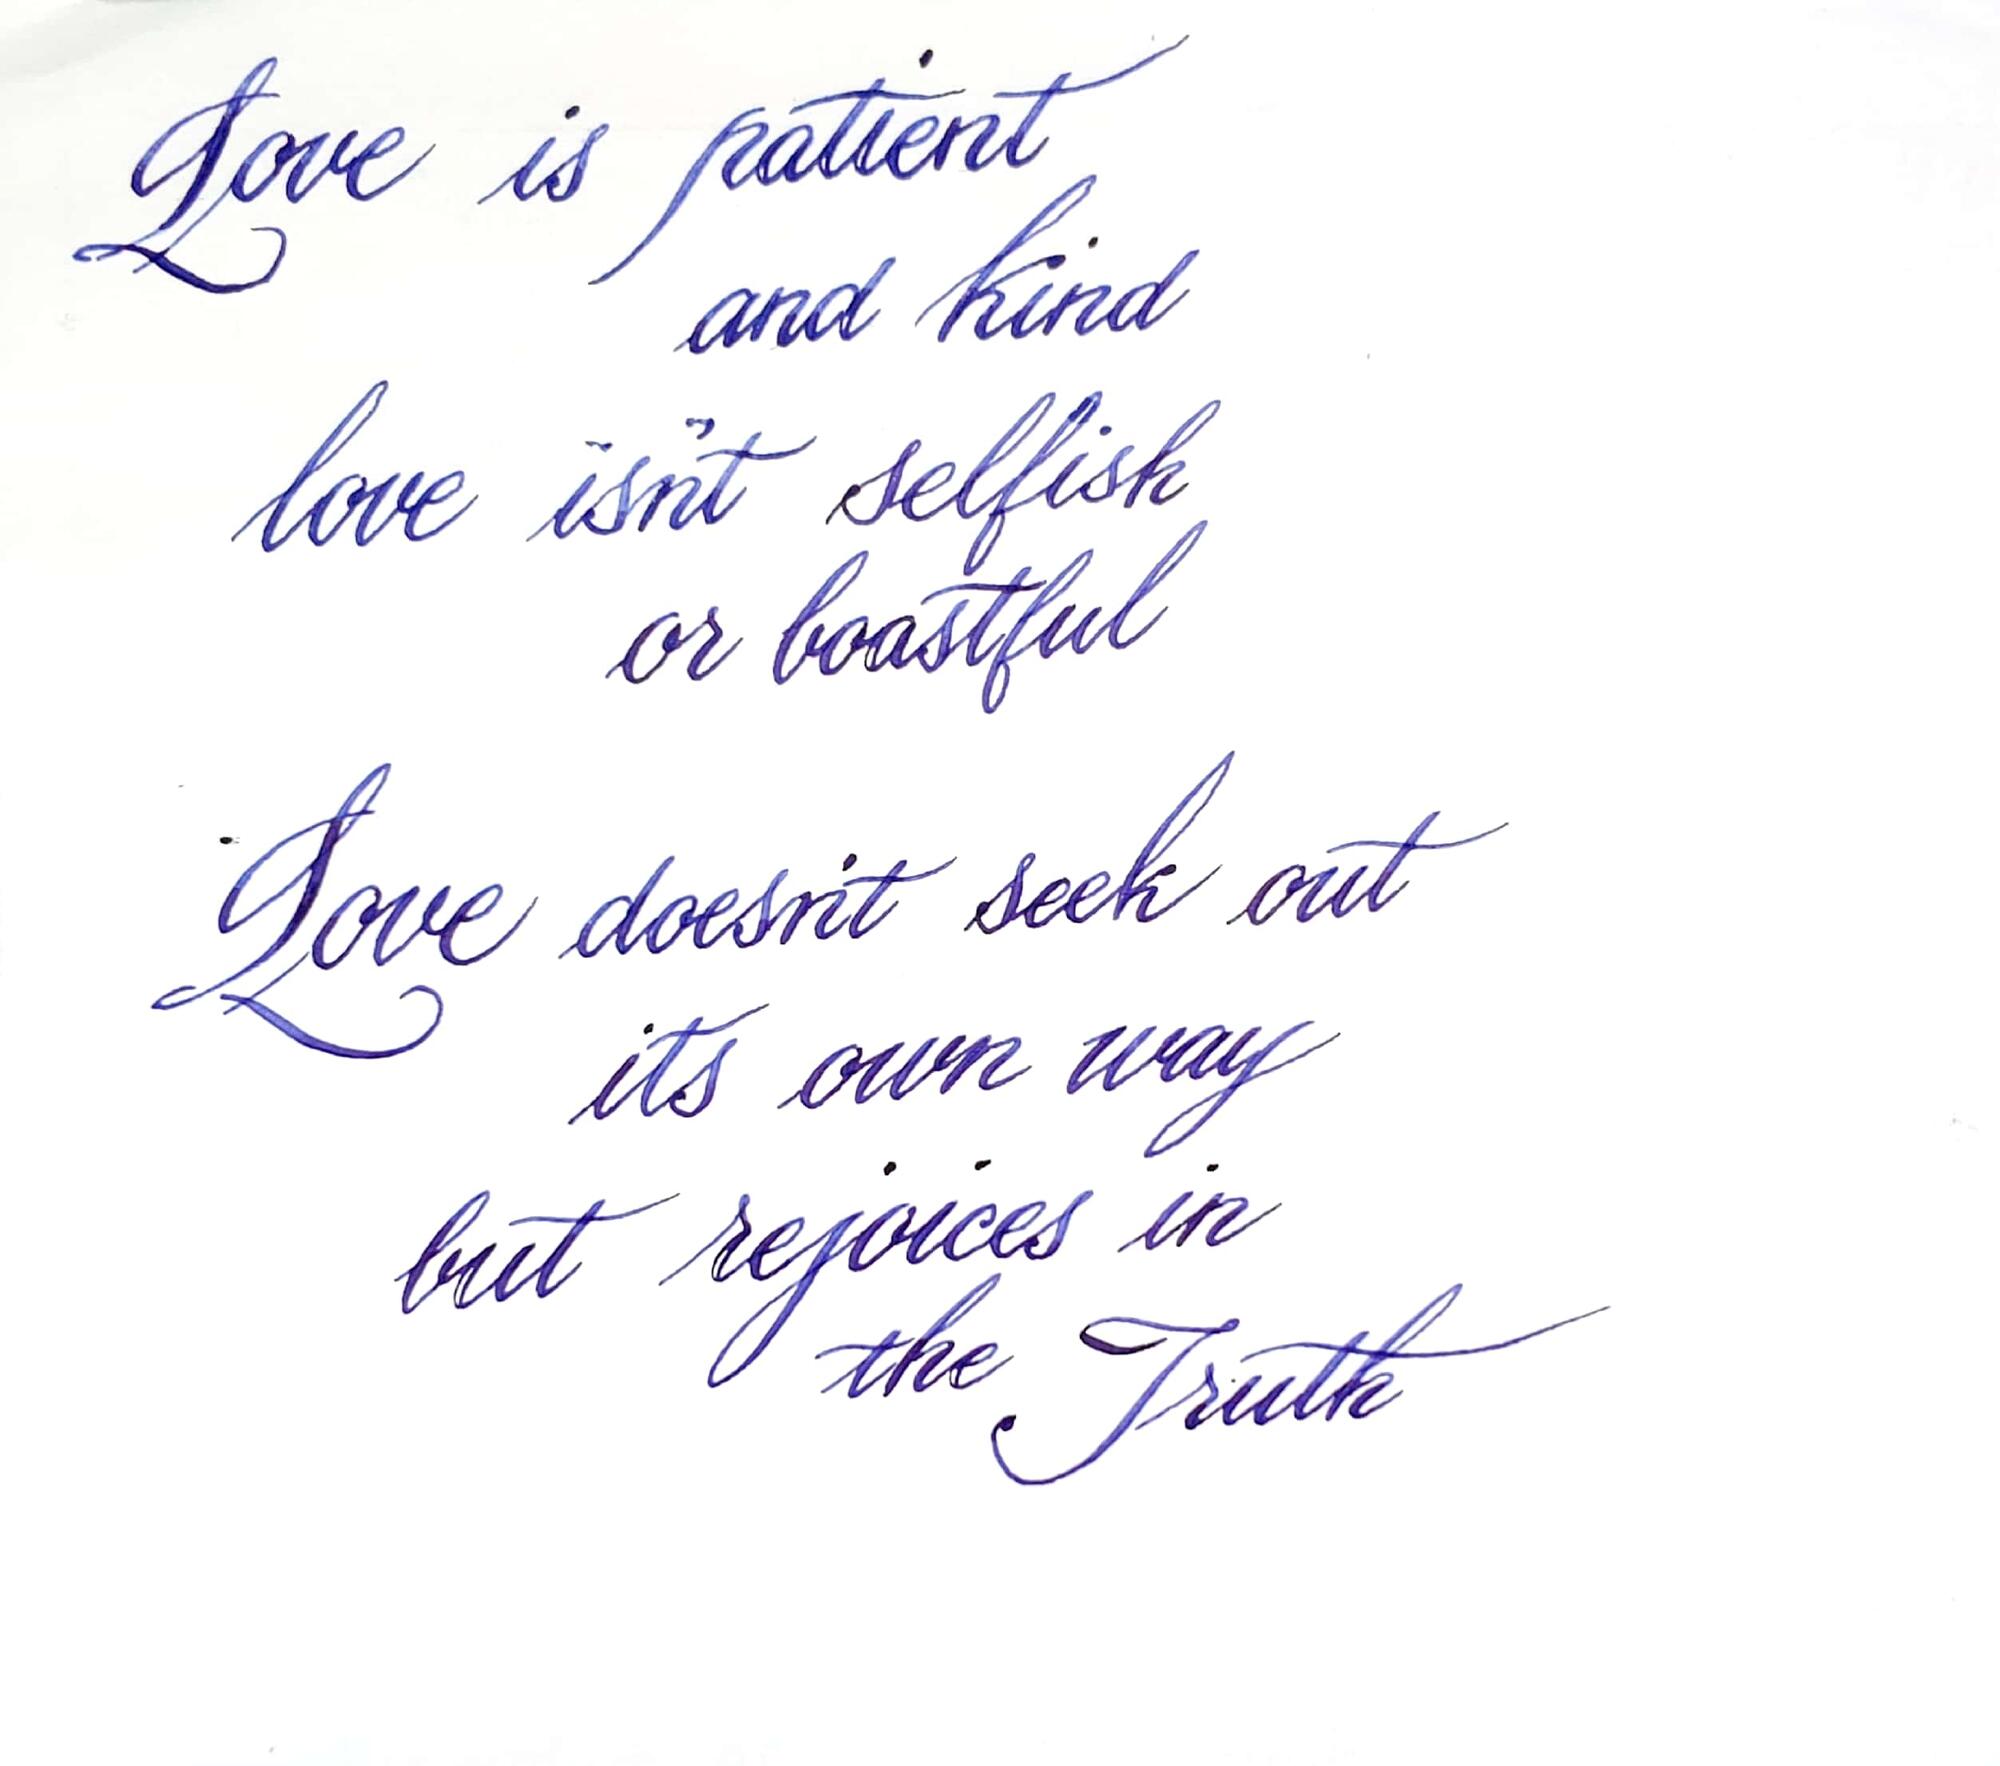 Love is patient
and kind
love isn't selfish
or boastful
Love doesn't seek out
its own way
but rejoices in
the Truth